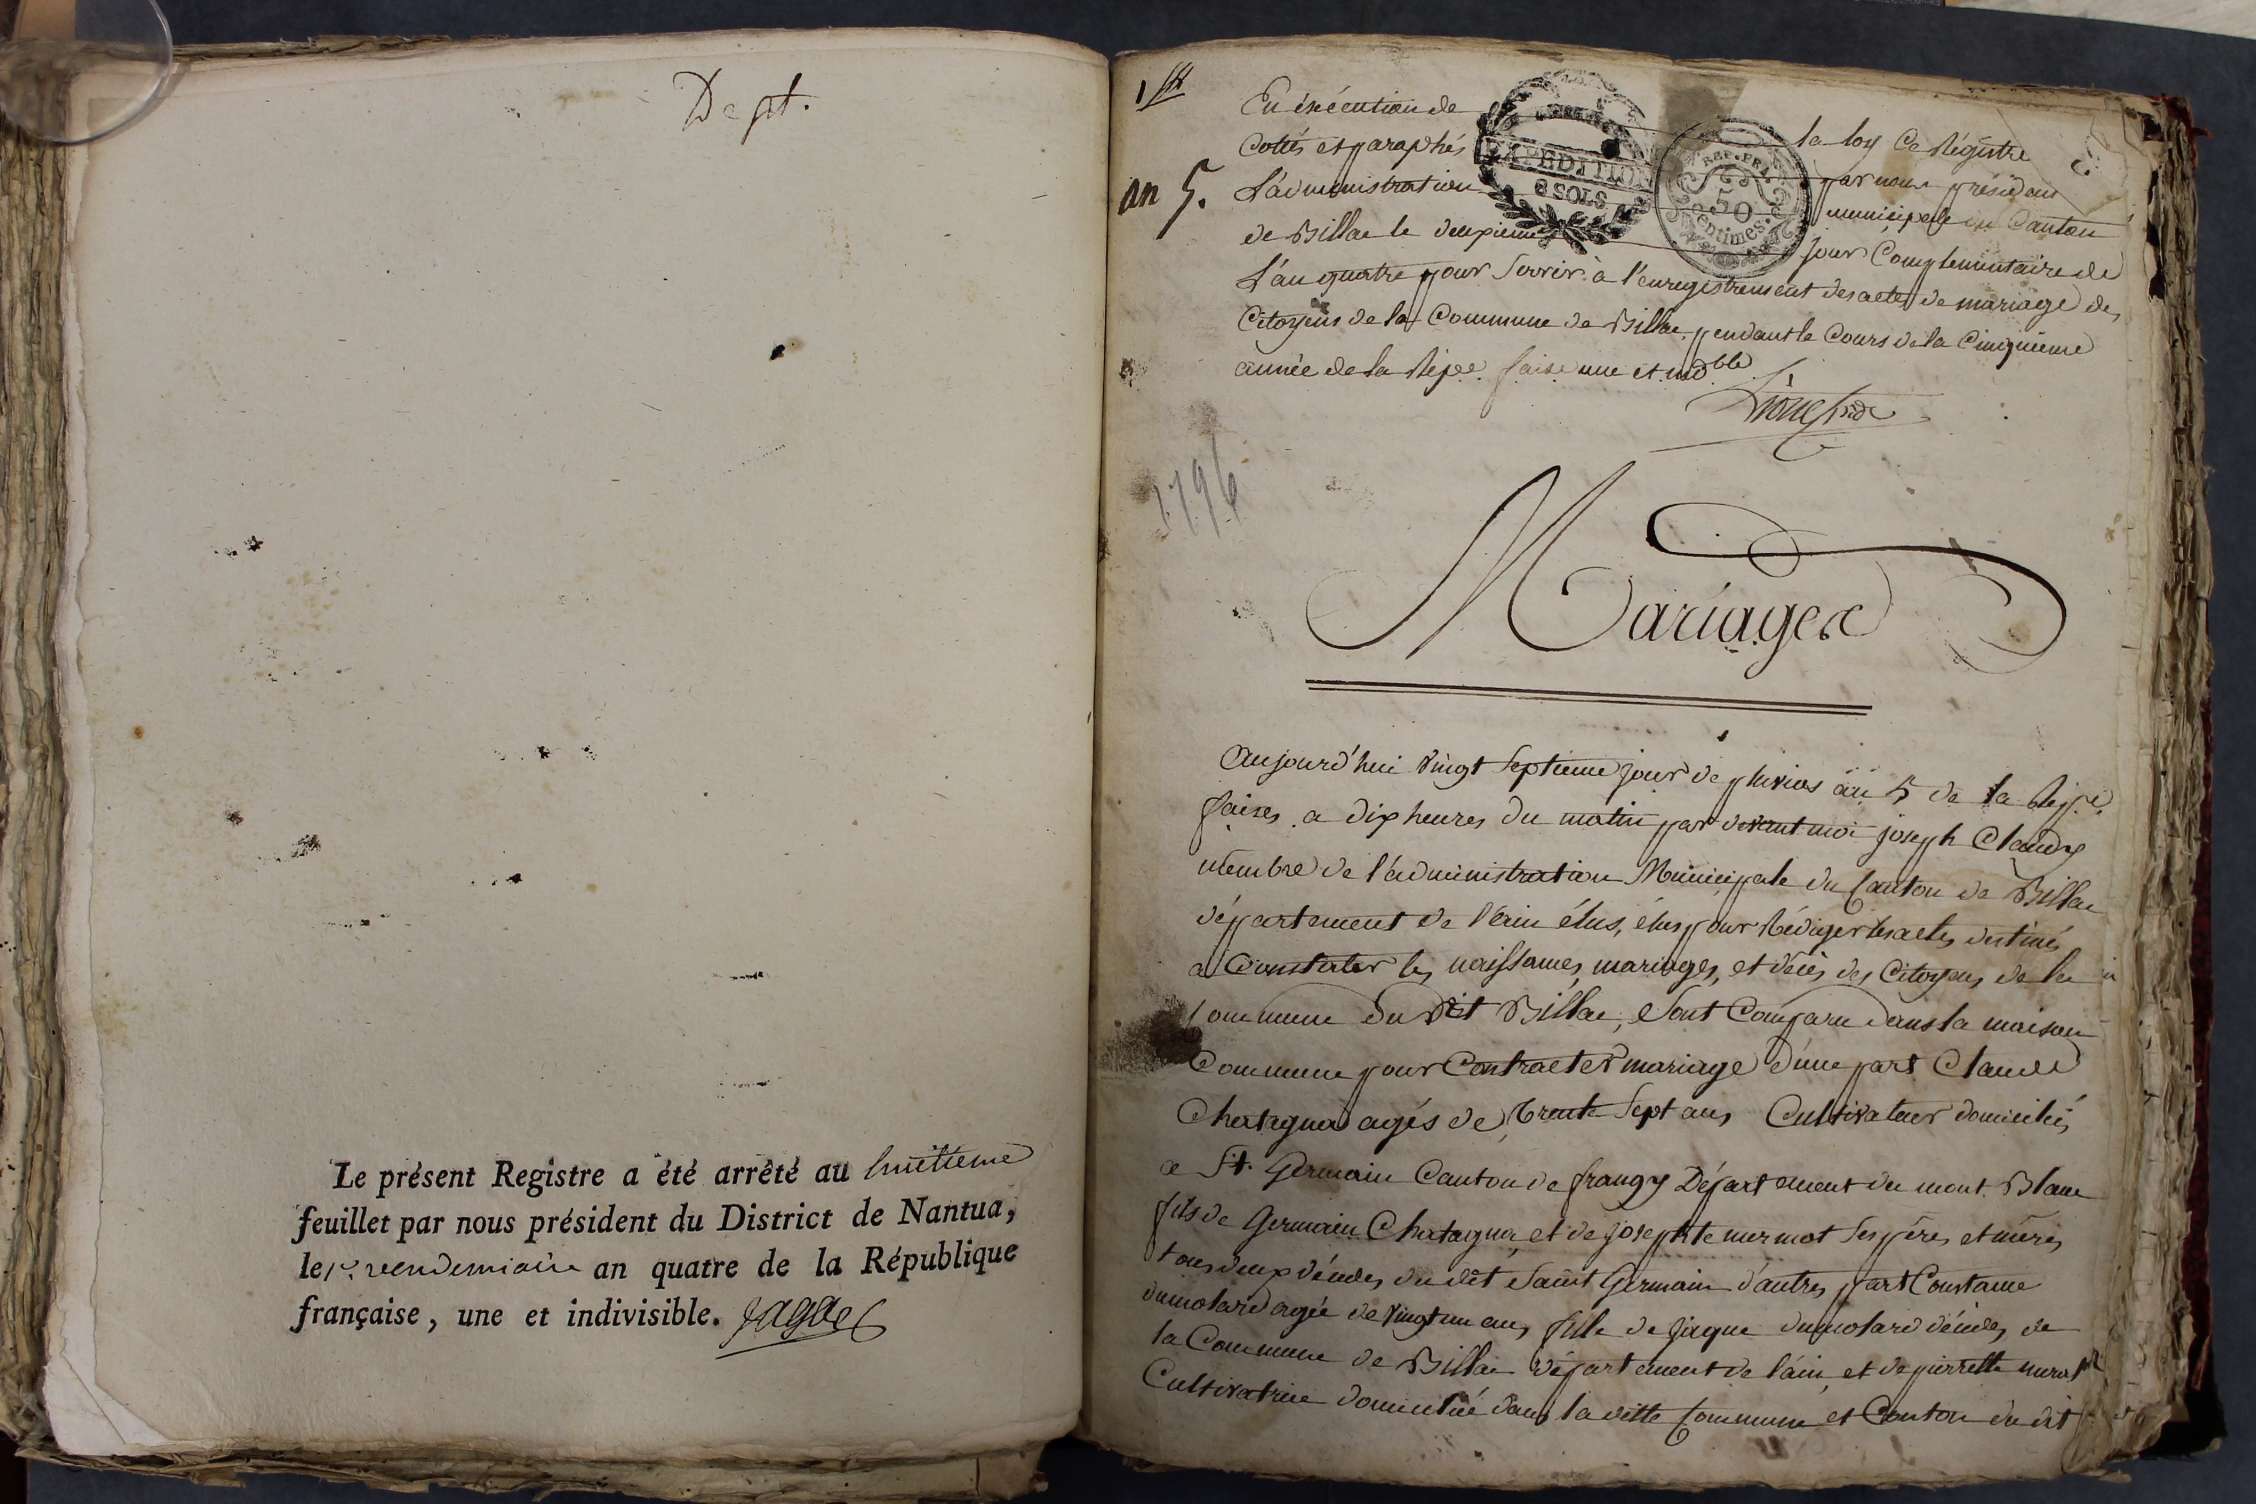 Dept.
Le présent Registre a été arrêté au huitieme
feuillet par nous président du District de Nantua,
le 1er. vendemiaire an quatre de la République
française, une et indivisible.
1
an 5.
1796
En éxécution de la loy Ce Régistre
Cottés et paraphés par nous présidant
L'administration municipale du Canton
de Billac le deuxieme jour Complementaire de
L'an quatre pour Servir à l'enregistrement des actes de mariage des
Citoyens de la Commune de Billac, pendant le Cours de la Cinquieme
année de la Répee. faise une et indble
EXPEDITION
8 SOLS
REP. FRA.
50
centimes
Mariages
Aujourd'hui vingt Septieme jour de pluvios an 5 de la Repe.
faises. a dix heures du matin par devant moi joseph Claudy
membre de l'administration Municipale du Canton de Billac
département de l'ain élus, élus pour Rédiger les actes destinés
a Constater les naissances, mariages, et décès des Citoyens de la
Commune du dit Billac, Sont Comparu dans la maison
Commune pour Contracter mariage d'une part Claude
Chatagna agés de trente Sept ans Cultivateur domicilié
a St. Germain Canton de frangy Département du mont. Blanc
fils de Germain Chatagna, et de josephte mermot Ses péres et méres
tous deux décédes du dit Saint Germain d'autres part Constance
dumolard agée de vingt un ans, fille de jaque dumolard décédes de
la Commune de Billac département de l'ain, et de pierrette
Cultivatrice domiciliée dans la ditte Commune et Canton du dit